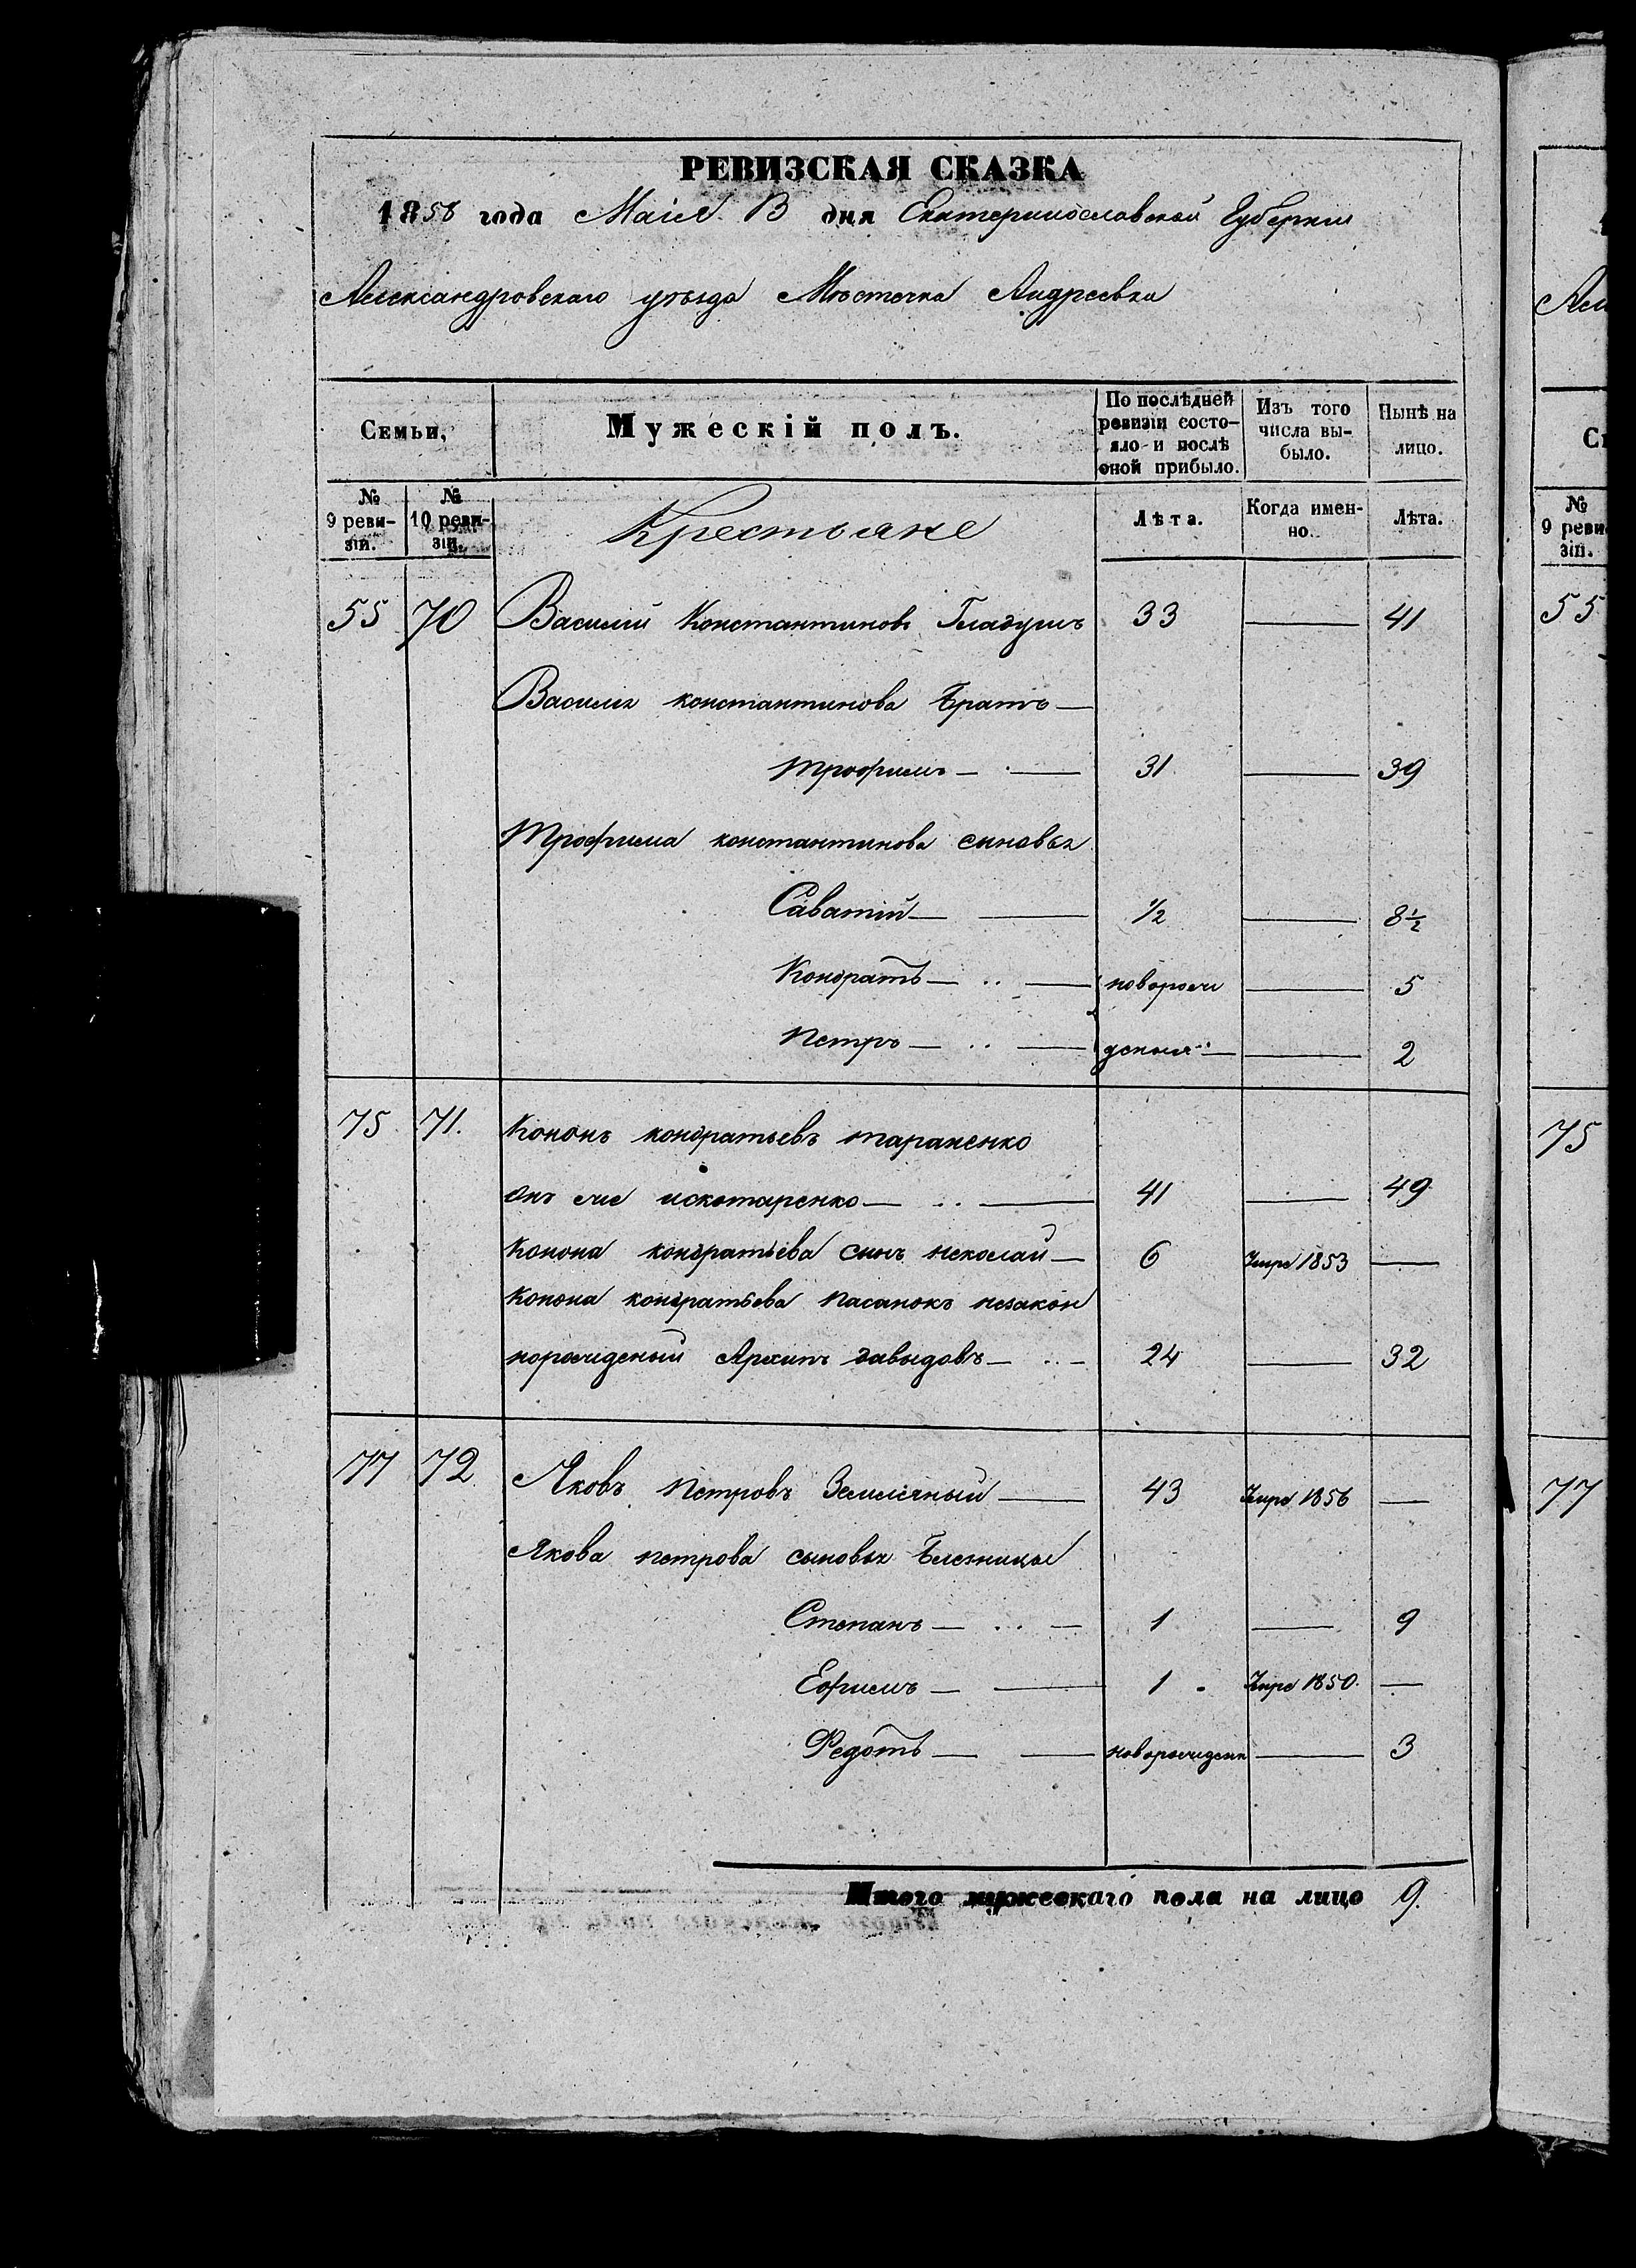 РЕВИЗСКАЯ СКАЗКА
1858 года Маія дня Екатеринославской Губерніи
Александровскаго уѣзда Мѣстечка Андреевки
Семьи,
Мужескій полъ.
По послѣдней ревизіи состо-яло и послѣ оной прибыло.
Изъ того числа вы-было.
Нынѣ на лицо.
№ 9 реви-зіи.
№ 10 реви-зіи.
Крестьяне
Лѣта.
Когда имен-но.
Лѣта.
55 70 Василий Константиновъ Гладушъ 33 — 41
Василия константинова Братъ —
Трофимъ — — 31 — 39
Трофима константинова сыновья
Саватій — — 1/2 — 8 1/2
Кондратъ — .. — новорож — 5
Петръ — .. — деныя — — 2
75 71. Кононъ кондратьевъ тараненко
онъ же искотаренко — .. — 41 — 49
Конона кондратьева сынъ николай — 6 Умре 1853 —
Конона кондратьева пасанокъ незакон
норожденый Архипъ давыдовъ — .. — 24 — 32
77 72 Яковъ Петровъ Земляный — 43 Умре 1856 —
Якова петрова сыновья Близницы
Степанъ — .. — 1 — 9
Ефимъ — — 1 Умре 1850. —
Федотъ — — новорожденн — 3
Итого мужескаго пола на лицо 9.
Але
Се
№ 9 реви зіи.
55
75
77